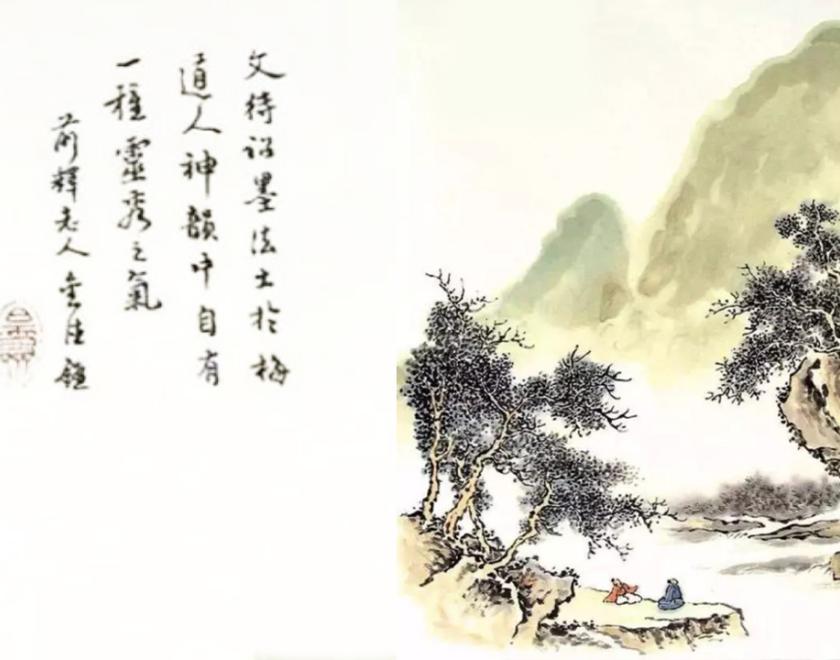 文待詔墨法出於梅
道人神韻中自有
一種靈秀之氣
前釋老人金德鑑